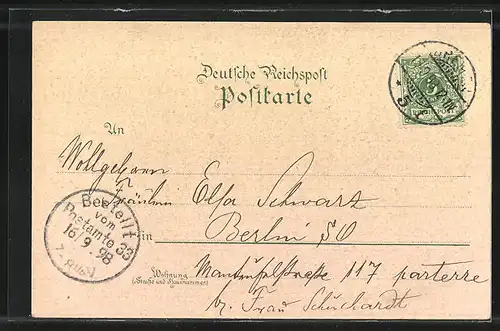 Deutsche Reichspost
Postkarte
An
Wollgeborn
Fräulein Elsa Schwarz
in Berlin, SO
Wohnung
(Straße und Hausnummer)
Manteufelstrasse 117 parterre
b. Frau Schuchardt
Bestellt
vom
Postamte 33
16/9. 98